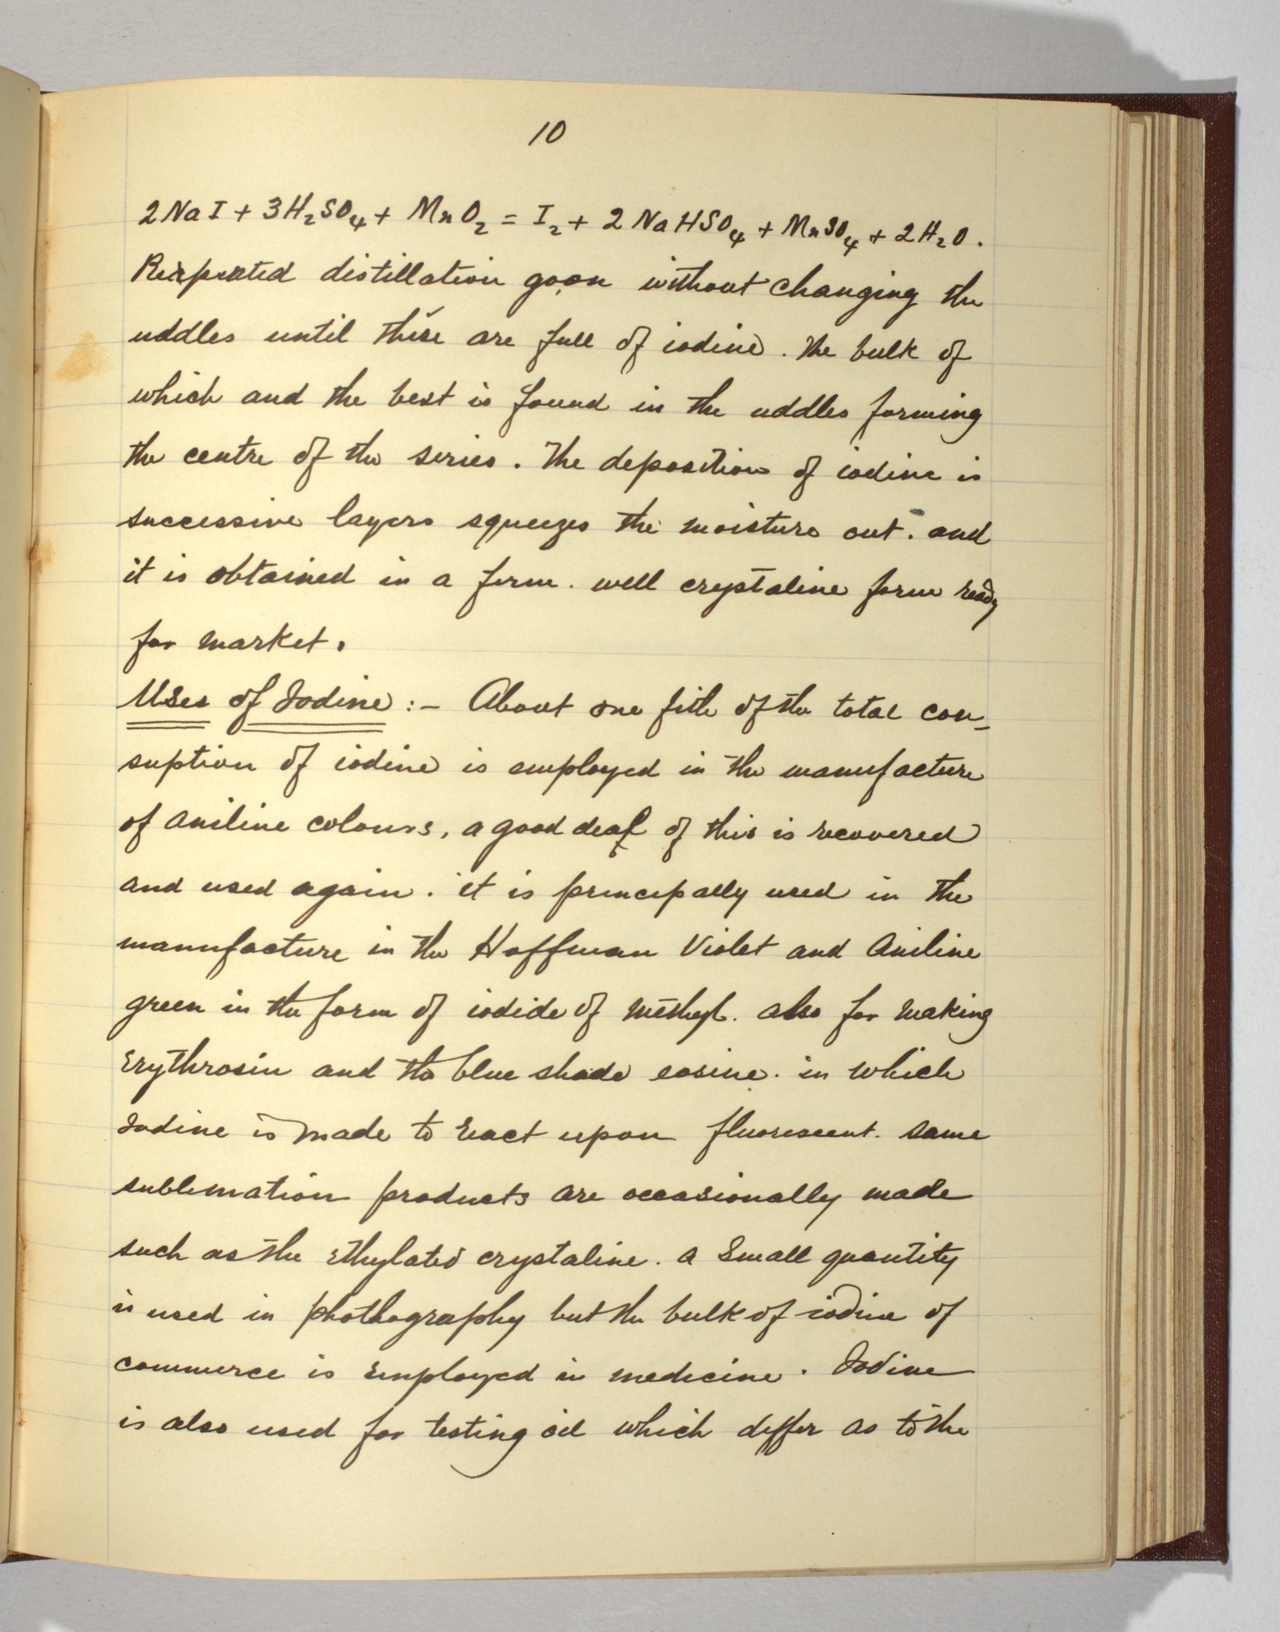 10
2NaI + 3H₂SO₄ + MnO₂ = I₂ + 2NaHSO₄ + MnSO₄ + 2H₂O.
distillation goon without changing the
uddles until these are full of iodine. The bulk of
which and the best is found in the uddles forming
the centre of the series. The deposition of iodine is
successive layers squeezes the moisture out. and
it is obtained in a form. well crystaline form ready
for market.
Uses of Iodine :- About one fith of the total con-
suption of iodine is employed in the manufacture
of aniline colours, a good deal of this is recovered
and used again. it is principally used in the
manufacture in the Hoffman Violet and Aniline
green in the form of iodide of methyl. also for making
Erythrosin and the blue shade eosine. in which
Iodine is made to react upon fluorescent. same
sublimation products are occasionally made
such as the Ethylated crystaline. a small quantity
is used in photography but the bulk of iodine of
commerce is employed in medicine. Iodine
is also used for testing oil which differ as to the